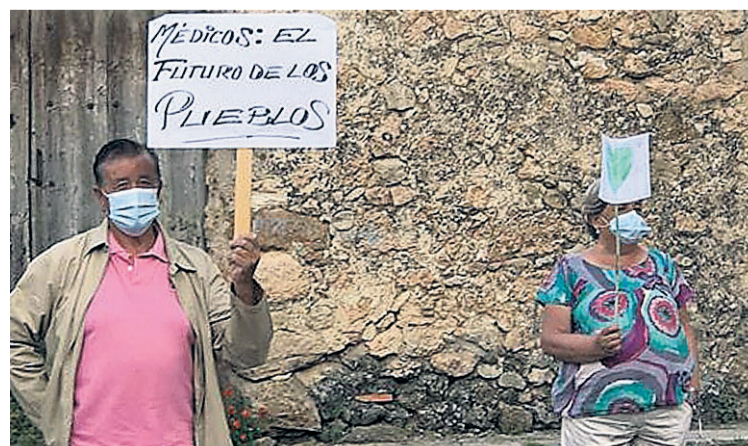 MÉDICOS: EL
FUTURO DE LOS
PUEBLOS